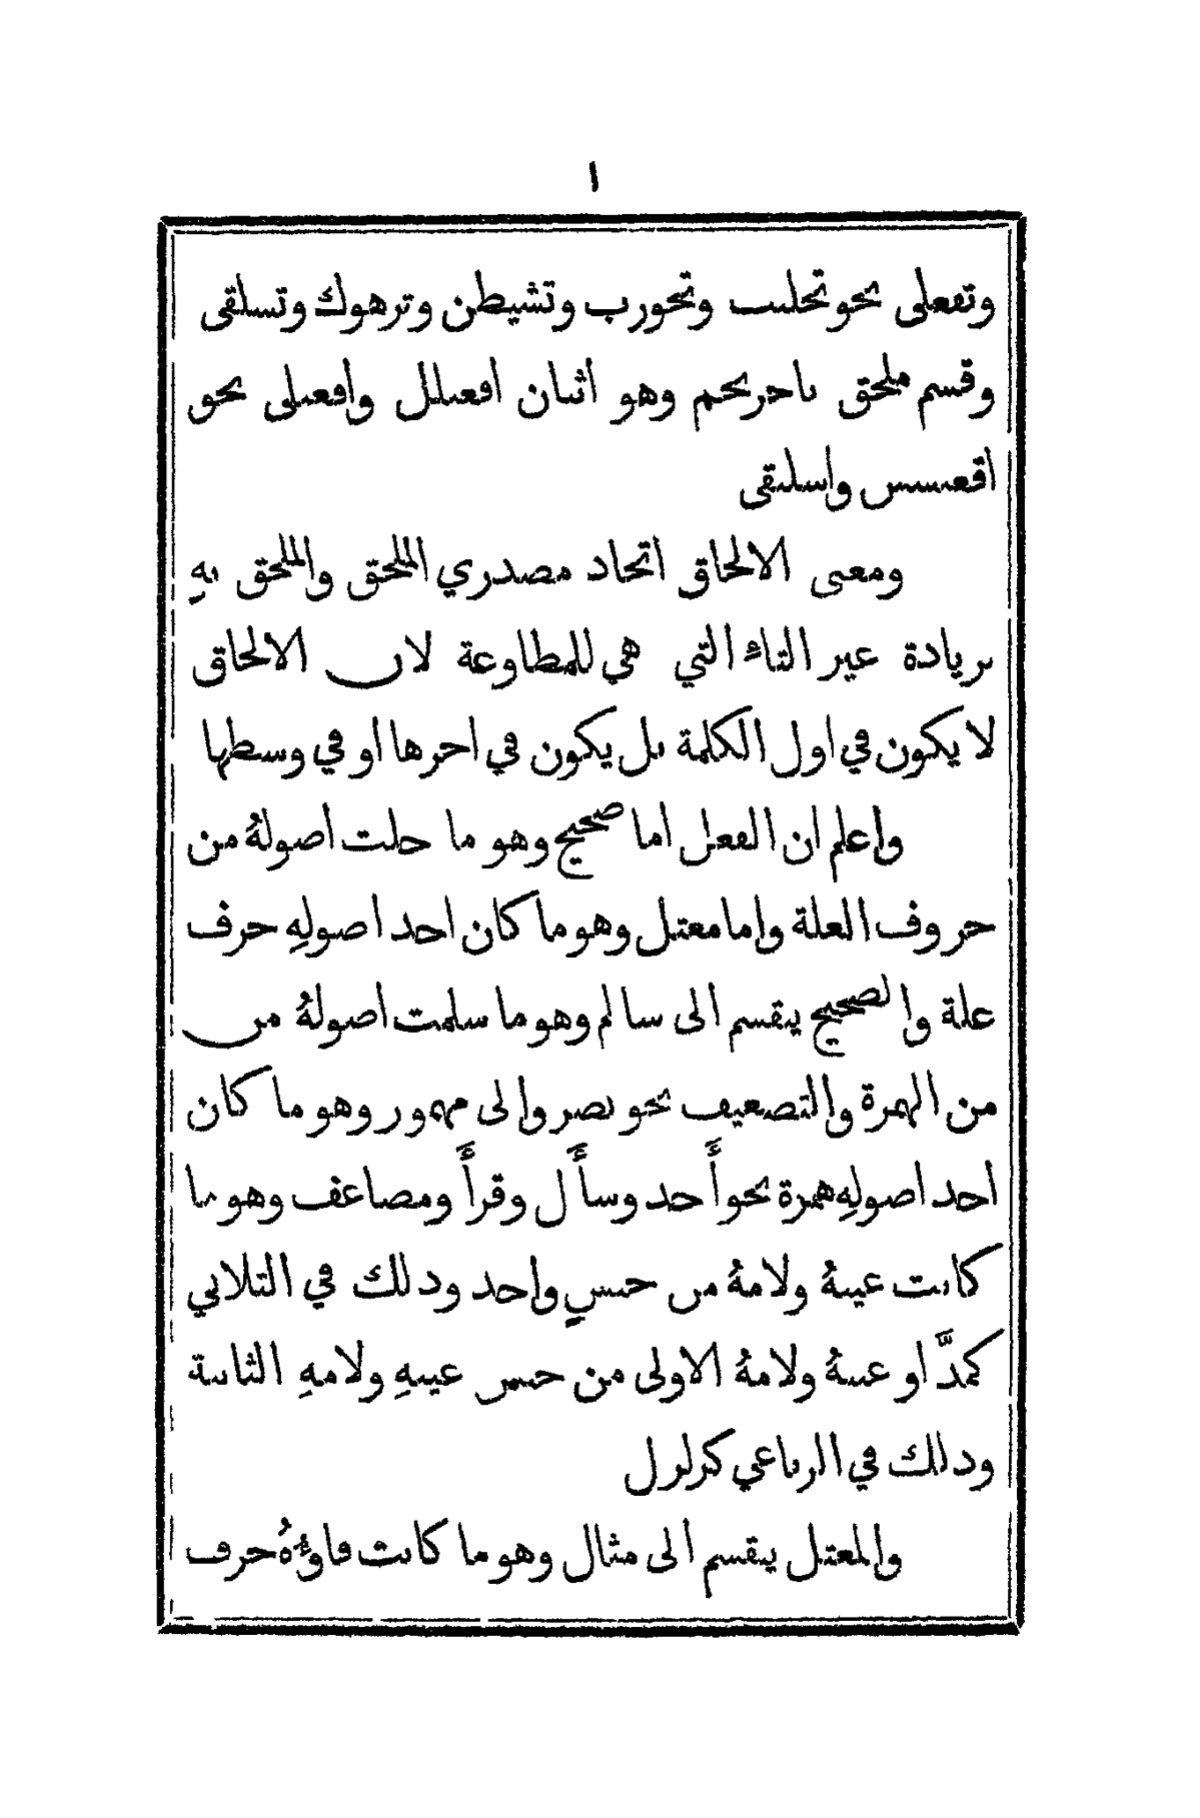 ١
وتفعلى نحو تجلبب وتجورب وتشيطن وترهوك وتسلقى
وقسم ملحق باحرنجم وهو اثنان افعنلل وافعنلى نحو
اقعنسس واسلنقى
ومعنى الالحاق اتحاد مصدري الملحق والملحق بهِ
بزيادة غير التاءِ التي هي للمطاوعة لان الالحاق
لا يكون في اول الكلمة بل يكون في اخرها او في وسطها
واعلم ان الفعل اما صحيح وهو ما خلت اصولهُ من
حروف العلة واما معتل وهو ما كان احد اصولهِ حرف
علة والصحيح ينقسم الى سالم وهو ما سلمت اصولهُ من
من الهمزة والتضعيف نحو نصر والى مهموز وهو ما كان
احد اصولهِ همزة نحو أَخذ وسأَل وقرأَ ومضاعف وهو ما
كانت عينهُ ولامهُ من جنسٍ واحد وذلك في الثلاثي
كمدَّ او عينهُ ولامهُ الاولى من جنس عينهِ ولامهِ الثانية
وذلك في الرباعي كزلزل
والمعتل ينقسم الى مثال وهو ما كانت فاوءُهُ حرف